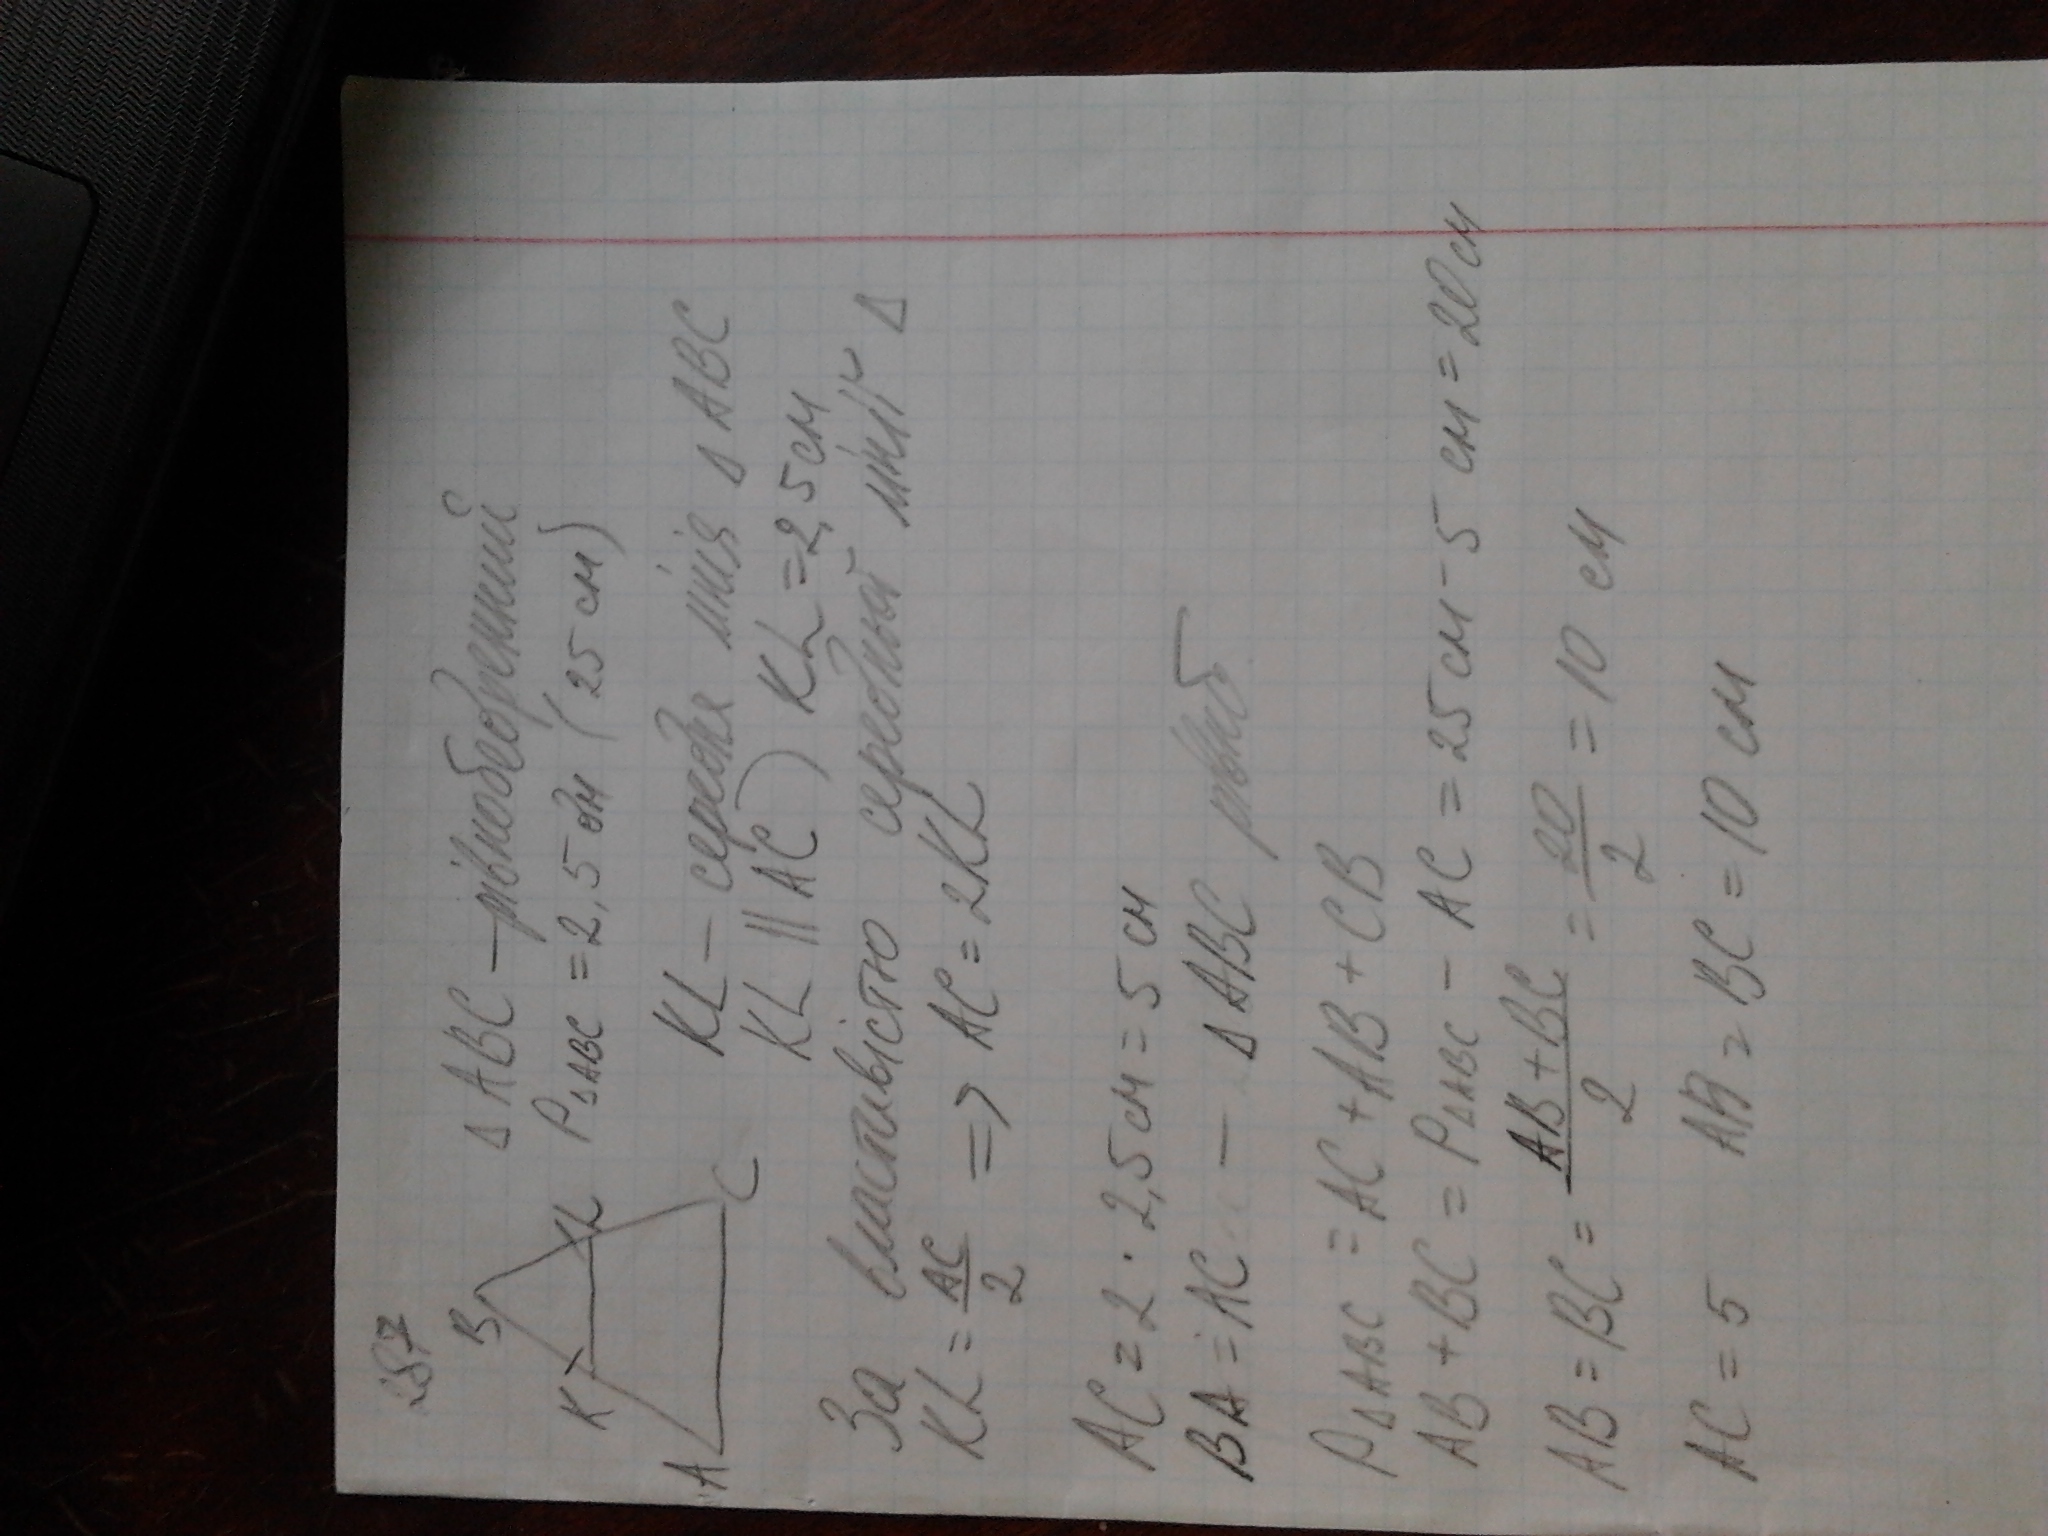 287
B
K
L
A
C
Δ ABC – рівнобедренний
P Δ ABC = 2,5 дм (25 см)
KL – середня лінія Δ ABC
KL || AC) KL = 2,5 см
За властивістю середньый лінії Δ
KL = AC/2 => AC = 2KL
AC = 2 · 2,5 см = 5 см
BA = AC – Δ ABC рівноб
P Δ ABC = AC + AB + CB
AB + BC = P Δ ABC – AC = 25 см – 5 см = 20 см
AB = BC = AB + BC/2 = 20/2 = 10 см
AC = 5 AB = BC = 10 см